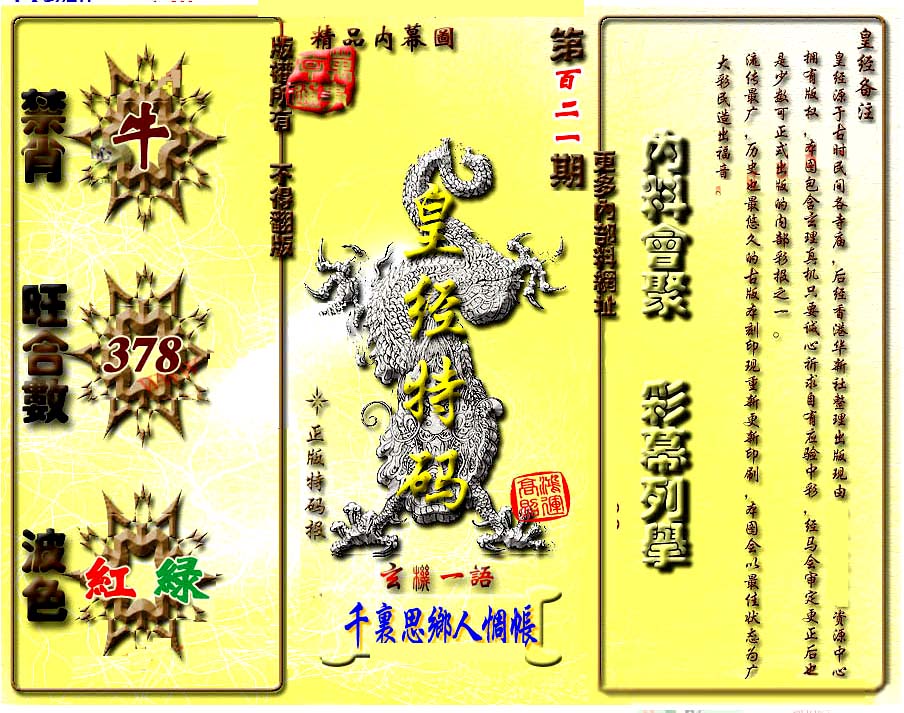 皇经备注
皇经源于古时民间各寺庙，后经香港华新社整理出版现由资源中心
拥有版权，本图包含玄理真机只要诚心祈求自有应验中彩，经马会审定更正后也
是少数可正式出版的内部彩报之一。
流传最广，历史也最悠久的古版本刻印现重新更新印刷，本图会以最佳状态为广
大彩民造出福音
内料會聚
彩幕列舉
更多內部料網址
第百二一期
精品内幕圖
皇经特码
正版特码报
鴻運高照
玄機一語
千裏思鄉人惆帳
版權所有 不得翻版
禁肖
牛
旺合數
378
波色
紅 綠